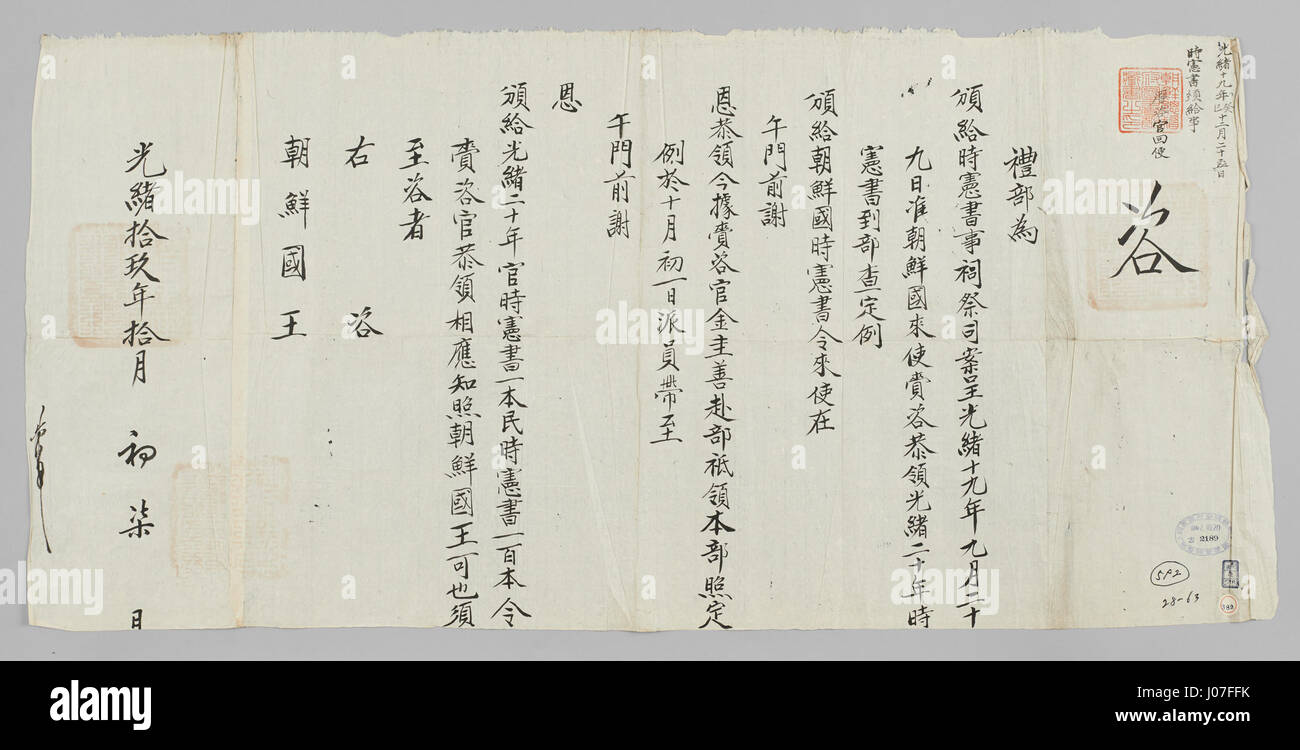 光緒十九年癸巳十二月二十五日
時憲書頒給事
咨官回便
咨
禮部為
頒給時憲書事祠祭司案呈光緒十九年九月二十
九日准朝鮮國來使賫咨恭領光緒二十年時
憲書到部查定例
頒給朝鮮國時憲書令來使在
午門前謝
恩恭領今據賫咨官金圭善赴部祗領本部照定
例於十月初一日派員帶至
午門前謝
恩
頒給光緒二十年官時憲書一本民時憲書一百本令
賫咨官恭領相應知照朝鮮國王可也須
至咨者
右咨
朝鮮國王
光緒拾玖年拾月初柒日
2189
592
28-63
382
alamy
alamy stock photo
J07FFK
www.alamy.com